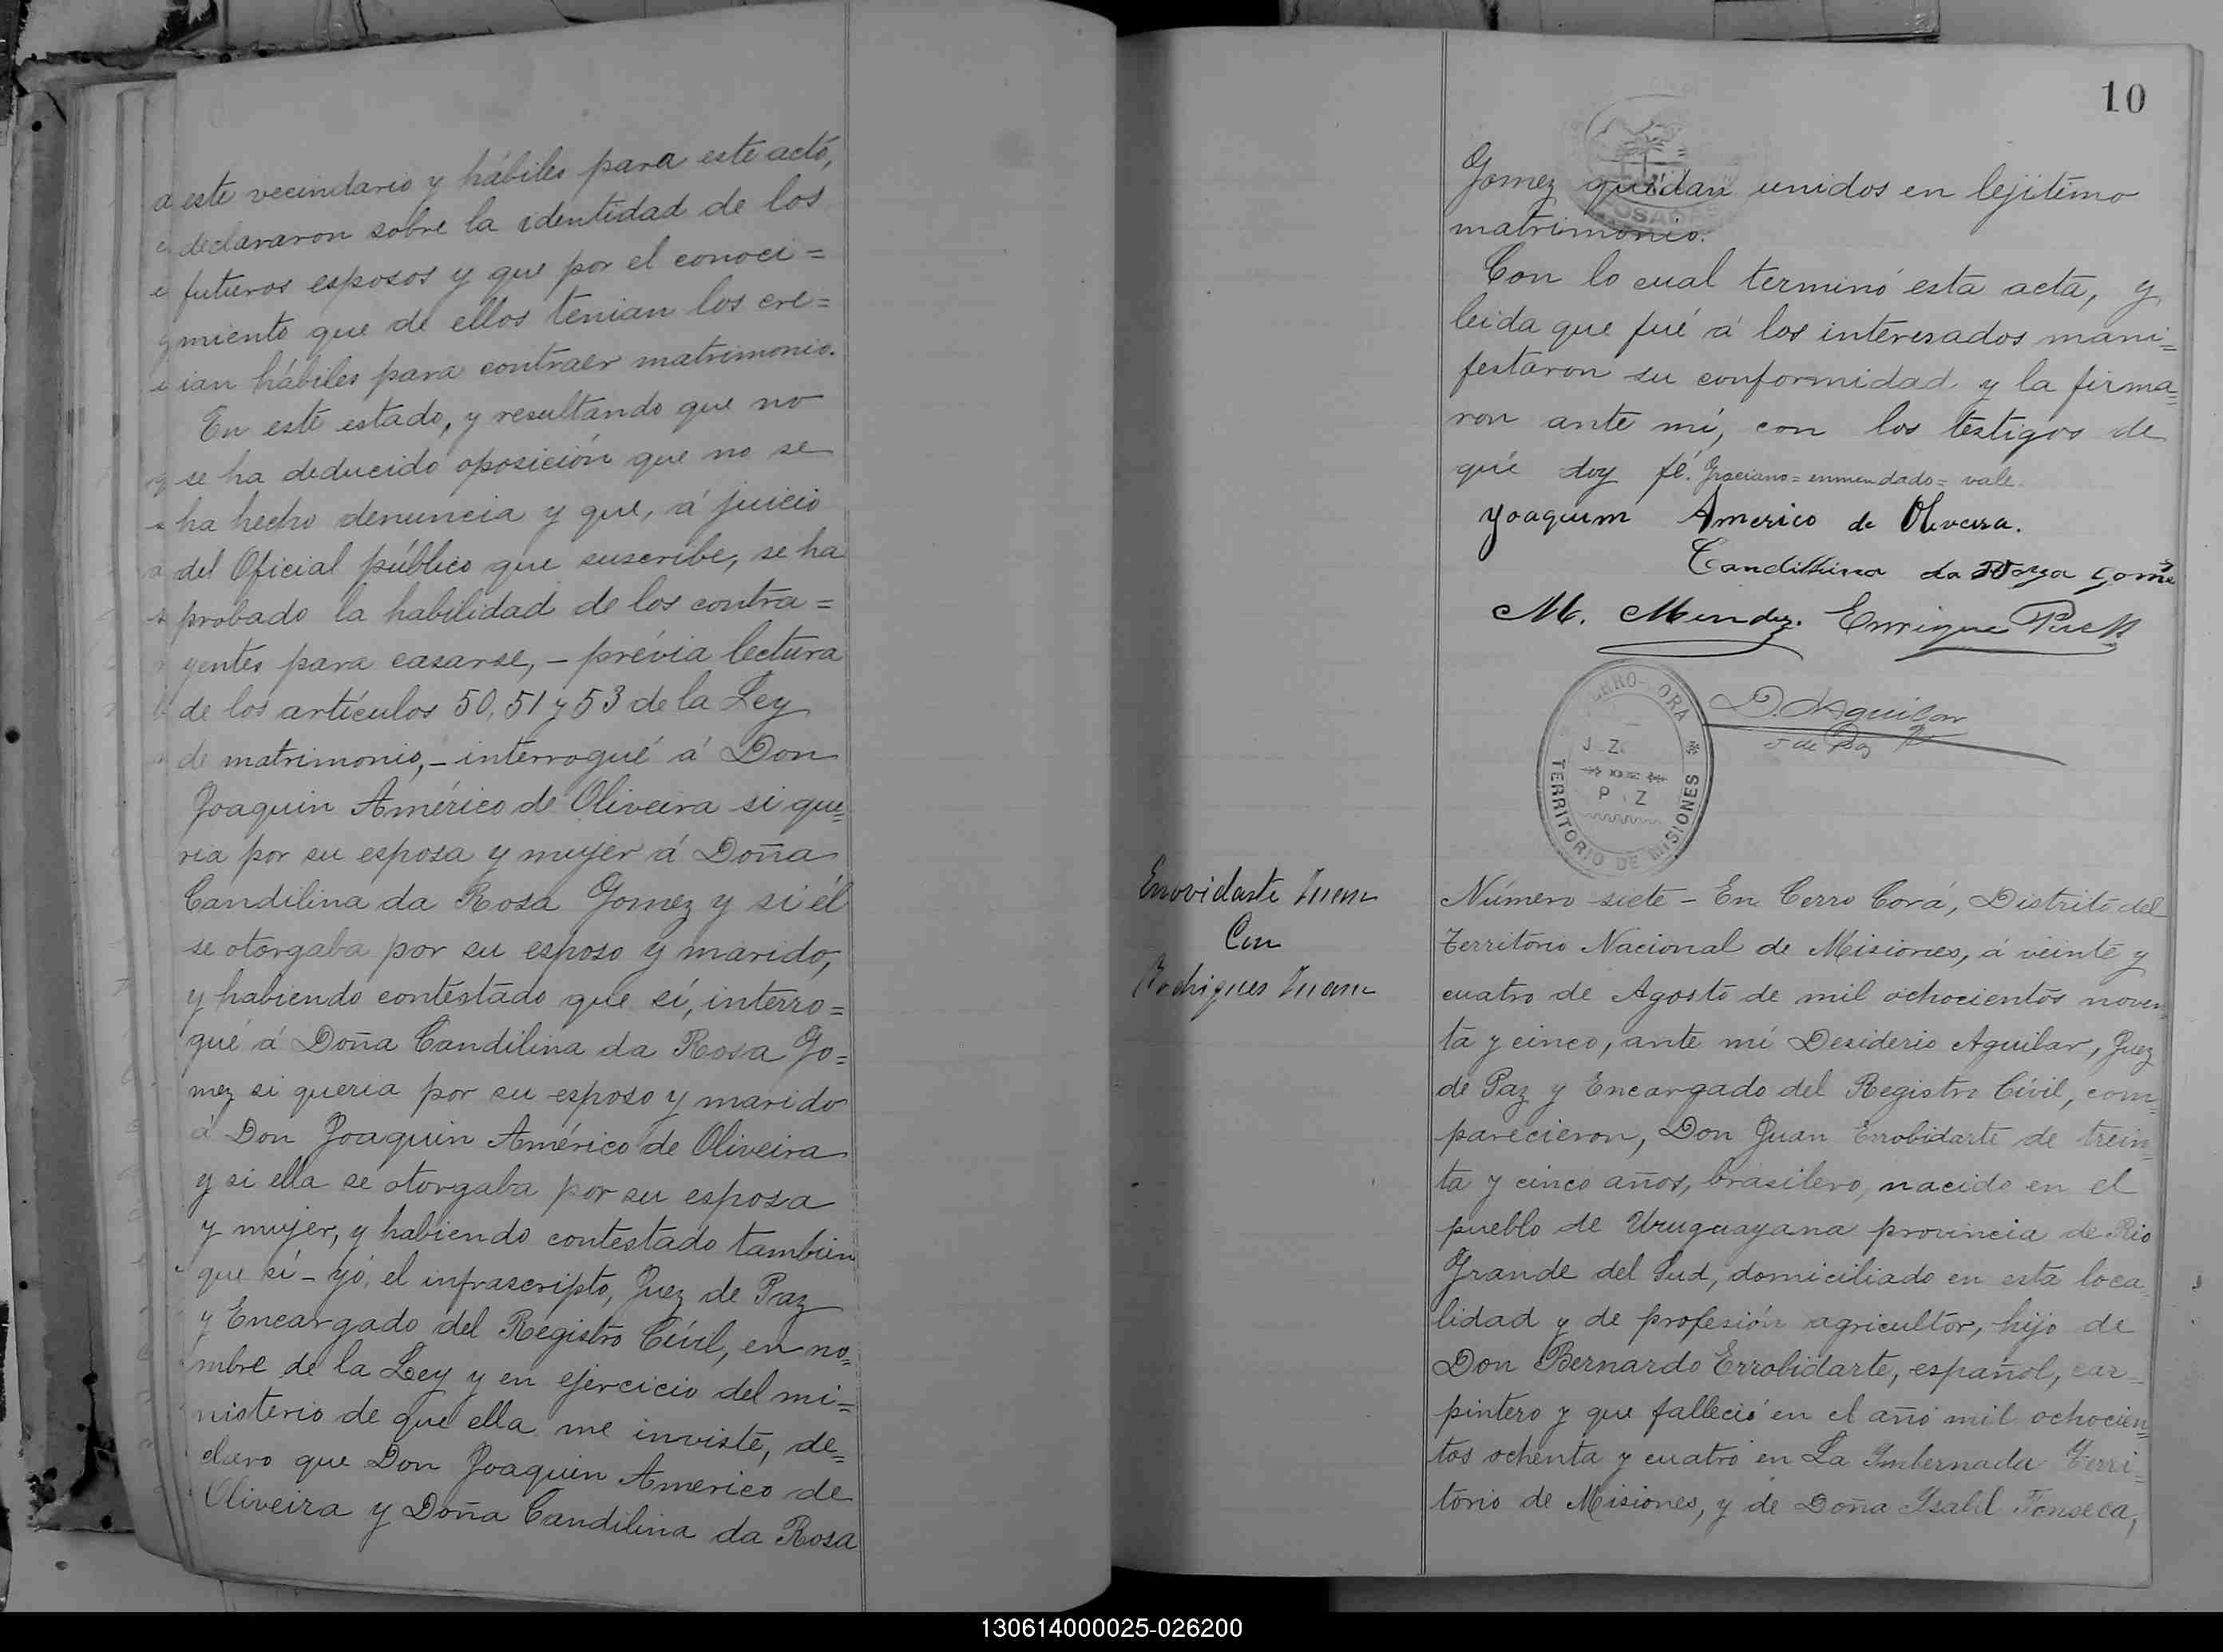 este vecindario y hábiles para este acto,
declararon sobre la identidad de los
futuros esposos y que por el conoci=
miento que de ellos tenian los cre=
ian hábiles para contraer matrimonio.
En este estado, y resultando que no
se ha deducido oposición que no se
ha hecho denuncia y que, á juicio
del Oficial público que suscribe, se ha
probado la habilidad de los contra=
yentes para casarse, - prévia lectura
de los artículos 50, 51 y 53 de la Ley
de matrimonio, - interrogué á Don
Joaquin Américo de Oliveira si que=
ria por su esposa y mujer á Doña
Candilina da Rosa Gomez y si él
se otorgaba por su esposo y marido,
y habiendo contestado que sí, interro=
gué á Doña Candilina da Rosa Go=
mez si queria por su esposo y marido
á Don Joaquin Américo de Oliveira
y si ella se otorgaba por su esposa
y mujer, y habiendo contestado tambien
que sí - yó, el infrascripto, Juez de Paz
y Encargado del Registro Civil, en no=
mbre de la Ley y en ejercicio del mi=
nisterio de que ella me inviste, de=
claro que Don Joaquin Americo de
Oliveira y Doña Candilina da Rosa
10
POSADAS
Gomez quedan unidos en lejítimo
matrimonio.
Con lo cual terminó esta acta, y
leida que fué á los interesados mani=
festaron su conformidad y la firma=
ron ante mí, con los testigos de
que doy fé. Graciano = enmendado = vale.
Joaquim Americo de Oliveira.
Candillina da Roza Gome
M. Mendez. Enrique
D. Aguilar
J de Paz
TERRITORIO DE MISIONES
Errovidarte Juan
Con
Rodrigues Juana
Número siete - En Cerro Corá, Distrito del
Territorio Nacional de Misiones, á veinte y
cuatro de Agosto de mil ochocientos noven=
ta y cinco, ante mí Desiderio Aguilar, Juez
de Paz y Encargado del Registro Civil, com=
parecieron, Don Juan Errobidarte de trein=
ta y cinco años, brasilero, nacido en el
pueblo de Uruguayana provincia de Rio
Grande del Sud, domiciliado en esta loca=
lidad y de profesión agricultor, hijo de
Don Bernardo Errobidarte, español, car=
pintero y que falleció en el año mil ochocien=
tos ochenta y cuatro en La Imbernada Terri=
torio de Misiones, y de Doña Isabel Fonseca,
130614000025-026200